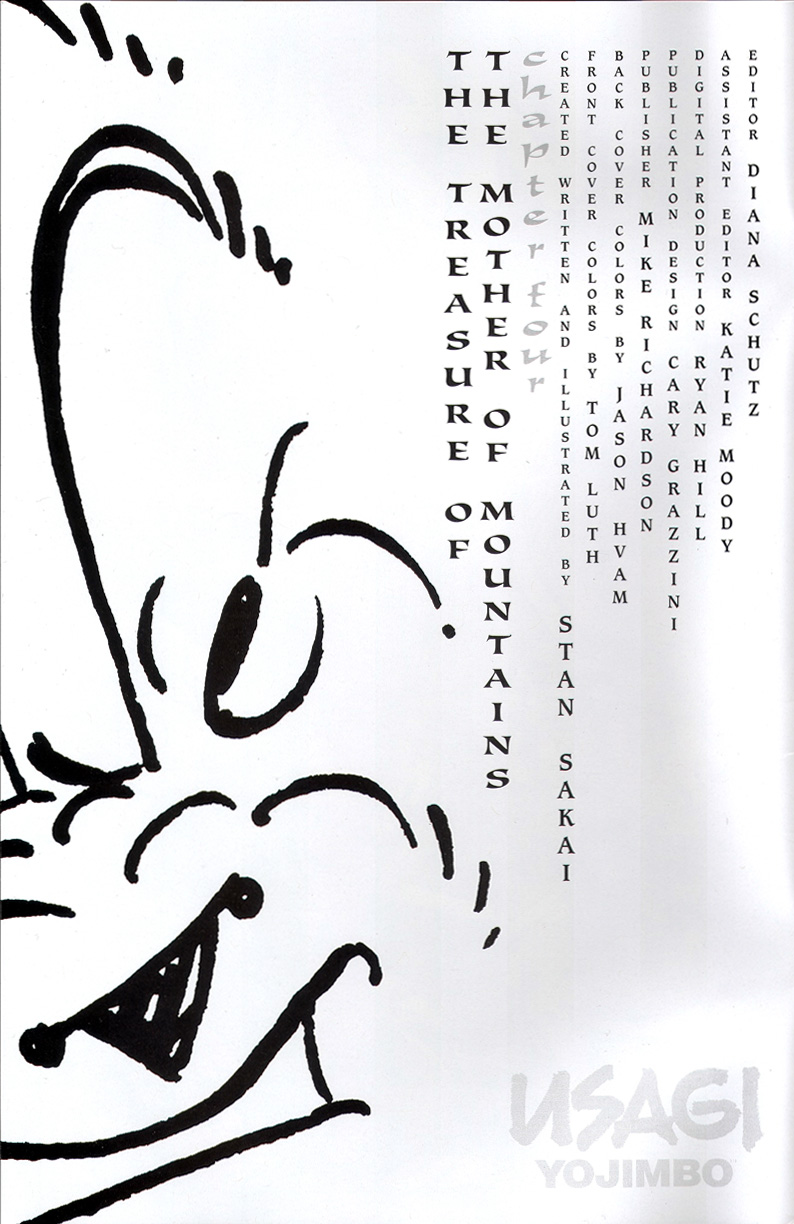 THE TREASURE OF
THE MOTHER OF MOUNTAINS
chapter four
CREATED WRITTEN AND ILLUSTRATED BY STAN SAKAI
FRONT COVER COLORS BY TOM LUTH
BACK COVER COLORS BY JASON HVAM
PUBLISHER MIKE RICHARDSON
PUBLICATION DESIGN CARY GRAZZINI
DIGITAL PRODUCTION RYAN HILL
ASSISTANT EDITOR KATIE MOODY
EDITOR DIANA SCHUTZ
USAGI
YOJIMBO